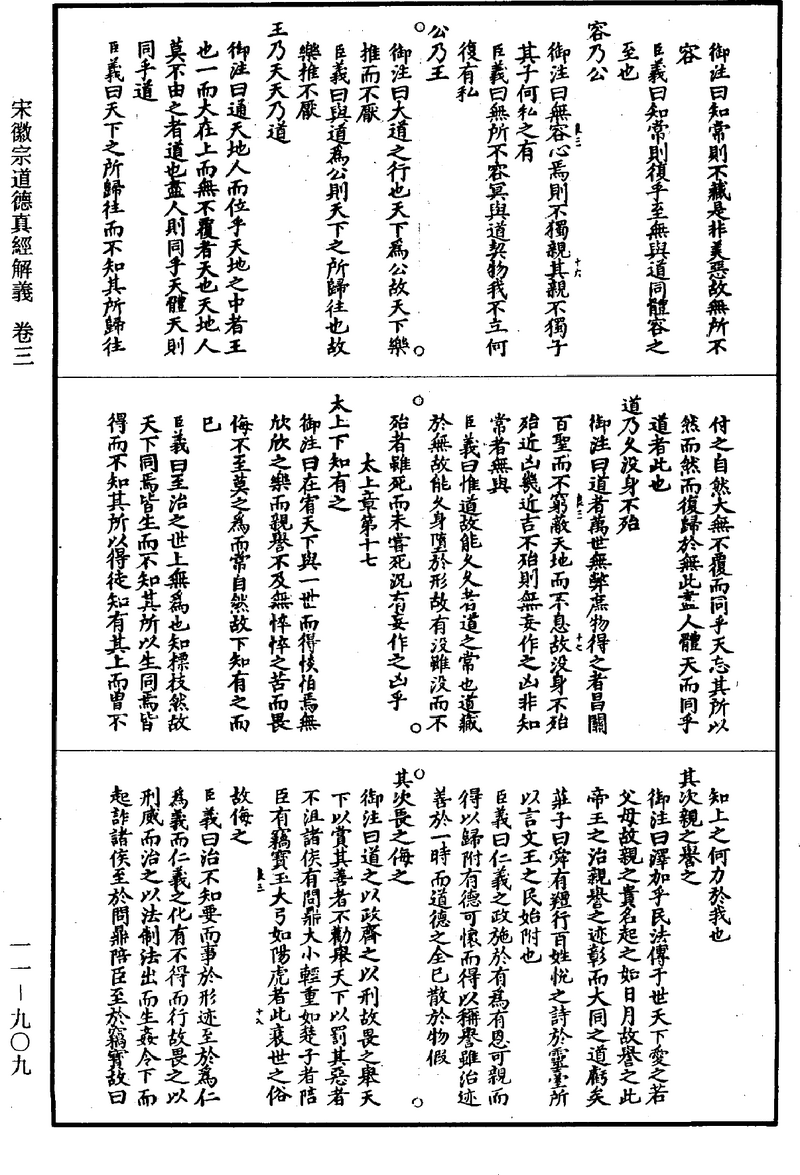 宋徽宗道德真經解義　卷三
一一－九〇九
御注曰知常則不藏是非美惡故無所不
容
臣義曰知常則復乎至無與道同體容之
至也
容乃公
御注曰無容心焉則不獨親其親不獨子
其子何私之有
臣義曰無所不容冥與道契物我不立何
復有私
公乃王
御注曰大道之行也天下為公故天下樂
推而不厭
臣義曰與道為公則天下之所歸往也故
樂推不厭
王乃天天乃道
御注曰通天地人而位乎天地之中者王
也一而大在上而無不覆者天也天地人
莫不由之者道也盡人則同乎天體天則
同乎道
臣義曰天下之所歸往而不知其所歸往
付之自然大無不覆而同乎天忘其所以
然而然而復歸於無此盡人體天而同乎
道者此也
道乃久没身不殆
御注曰道者萬世無弊庶物得之者昌關
百聖而不窮敵天地而不息故没身不殆
殆近凶幾近吉不殆則無妄作之凶非知
常者無與
臣義曰惟道故能久久者道之常也道藏
於無故能久身墮於形故有没雖没而不
殆者雖死而未嘗死況有妄作之凶乎
太上章第十七
太上下知有之
御注曰在宥天下與一世而得惔怕焉無
欣欣之樂而親譽不及無悴悴之苦而畏
侮不至莫之為而常自然故下知有之而
已
臣義曰至治之世上無為也知標枝然故
天下同焉皆生而不知其所以生同焉皆
得而不知其所以得徒知有其上而曾不
知上之何力於我也
其次親之譽之
御注曰澤加乎民法傳于世天下愛之若
父母故親之貴名起之如日月故譽之此
帝王之治親譽之迹彰而大同之道虧矣
莊子曰舜有羶行百姓悅之詩於靈臺所
以言文王之民始附也
臣義曰仁義之政施於有為有恩可親而
得以歸附有德可懷而得以稱譽雖治迹
善於一時而道德之全已散於物假
其次畏之侮之
御注曰道之以政齊之以刑故畏之舉天
下以賞其善者不勸舉天下以罰其惡者
不沮諸侯有問鼎大小輕重如楚子者陪
臣有竊寶玉大弓如陽虎者此衰世之俗
故侮之
臣義曰治不知要而事於形迹至於為仁
為義而仁義之化有不得而行故畏之以
刑威而治之以法制法出而生姦令下而
起詐諸侯至於問鼎陪臣至於竊寶故曰